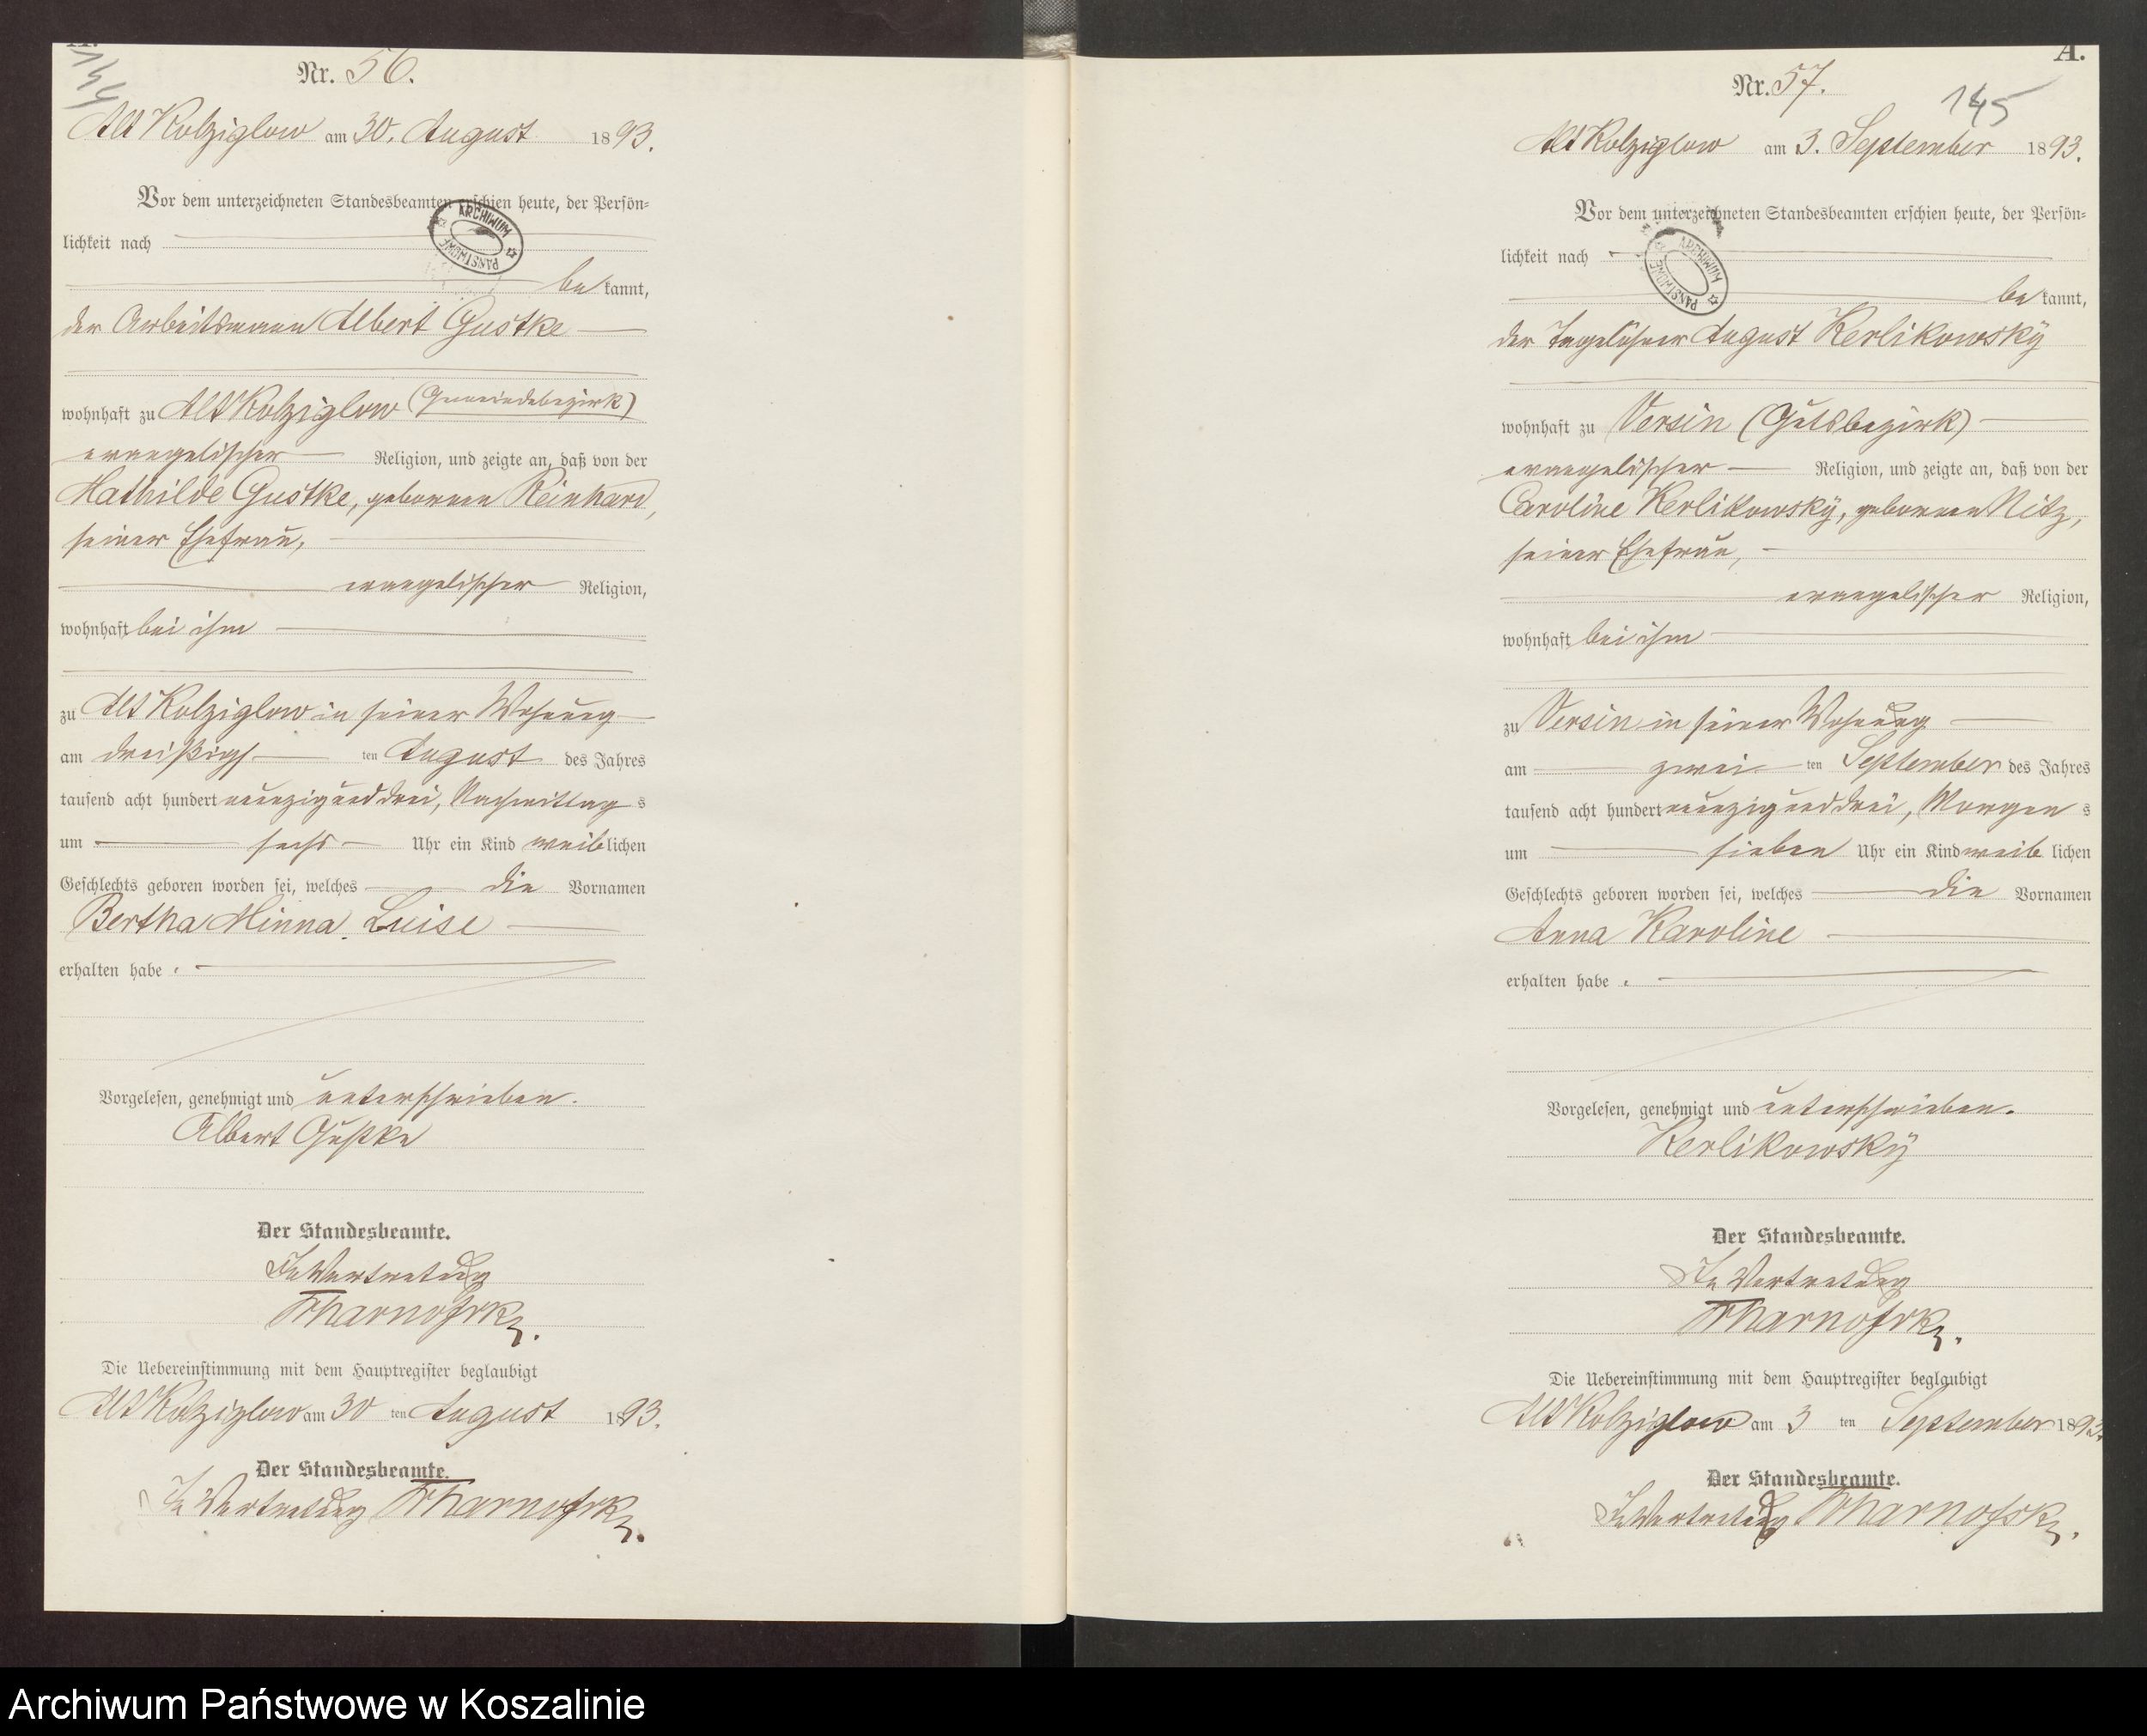 144
Nr. 56.
Alt Kolziglow am 30. August 1893.
Vor dem unterzeichneten Standesbeamten erschien heute, der Persön-
lichkeit nach
be kannt,
der Arbeitsmann Albert Gustke
wohnhaft zu Alt Kolziglow (Gemeindebezirk)
evangelischer Religion, und zeigte an, daß von der
Mathilde Gustke, geborenen Reinhard,
seiner Ehefrau,
evangelischer Religion,
wohnhaft bei ihm
zu Alt Kolziglow in seiner Wohnung
am dreißigs ten August des Jahres
tausend acht hundert neunzig und drei, Nachmittag s
um sechs Uhr ein Kind weib lichen
Geschlechts geboren worden sei, welches die Vornamen
Bertha Minna Luise
erhalten habe.
Vorgelesen, genehmigt und unterschrieben.
Albert Gustke
Der Standesbeamte.
In Vertretung
Die Uebereinstimmung mit dem Hauptregister beglaubigt
Alt Kolziglow am 30 ten August 1893.
Der Standesbeamte.
In Vertretung
ARCHIWUM PAŃSTWOWE
A.
Nr. 57.
145
Alt Kolziglow am 3. September 1893.
Vor dem unterzeichneten Standesbeamten erschien heute, der Persön-
lichkeit nach
be kannt,
der Tagelöhner August Kerlikowsky
wohnhaft zu Versin (Gutsbezirk)
evangelischer Religion, und zeigte an, daß von der
Caroline Kerlikowsky, geborenen Nitz,
seiner Ehefrau,
evangelischer Religion,
wohnhaft bei ihm
zu Versin in seiner Wohnung
am zwei ten September des Jahres
tausend acht hundert neunzig und drei, Morgen s
um sieben Uhr ein Kind weib lichen
Geschlechts geboren worden sei, welches die Vornamen
Anna Karoline
erhalten habe.
Vorgelesen, genehmigt und unterschrieben.
Kerlikowsky
Der Standesbeamte.
In Vertretung
Die Uebereinstimmung mit dem Hauptregister beglaubigt
Alt Kolziglow am 3 ten September 1893.
Der Standesbeamte.
In Vertretung
ARCHIWUM PAŃSTWOWE
Archiwum Państwowe w Koszalinie